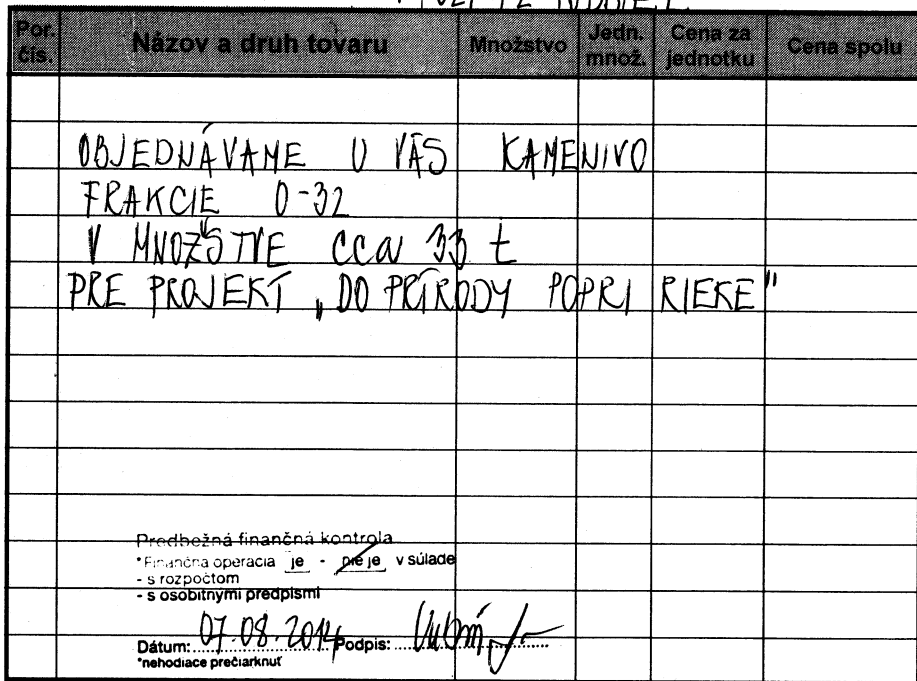 Por. čís. Názov a druh tovaru Množstvo Jedn. množ. Cena za jednotku Cena spolu
OBJEDNÁVAME U VÁS KAMENIVO
FRAKCIE 0-32
V MNOŽSTVE cca 33 t
PRE PROJEKT „DO PRÍRODY POPRI RIEKE"
Predbežná finančná kontrola
*Finančná operácia je - nie je v súlade
- s rozpočtom
- s osobitnými predpismi
Dátum: 07.08.2014 Podpis:
*nehodiace prečiarknuť